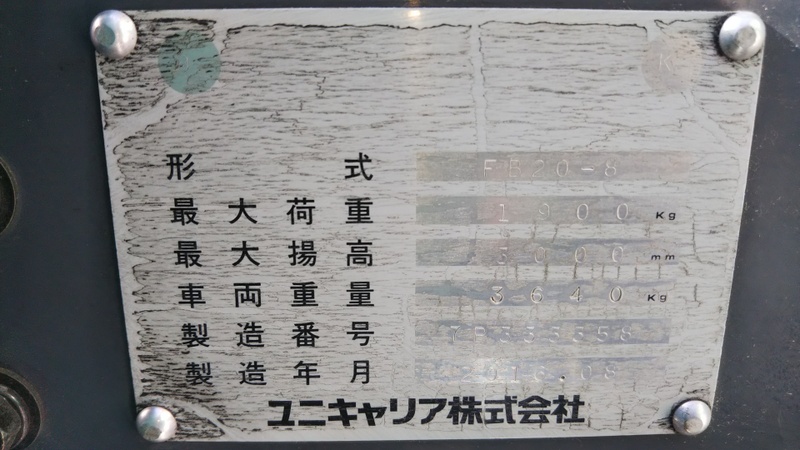 形式 FB20-8
最大荷重 1900 Kg
最大揚高 3000 mm
車両重量 3640 Kg
製造番号
製造年月 2016.08
ユニキャリア株式会社